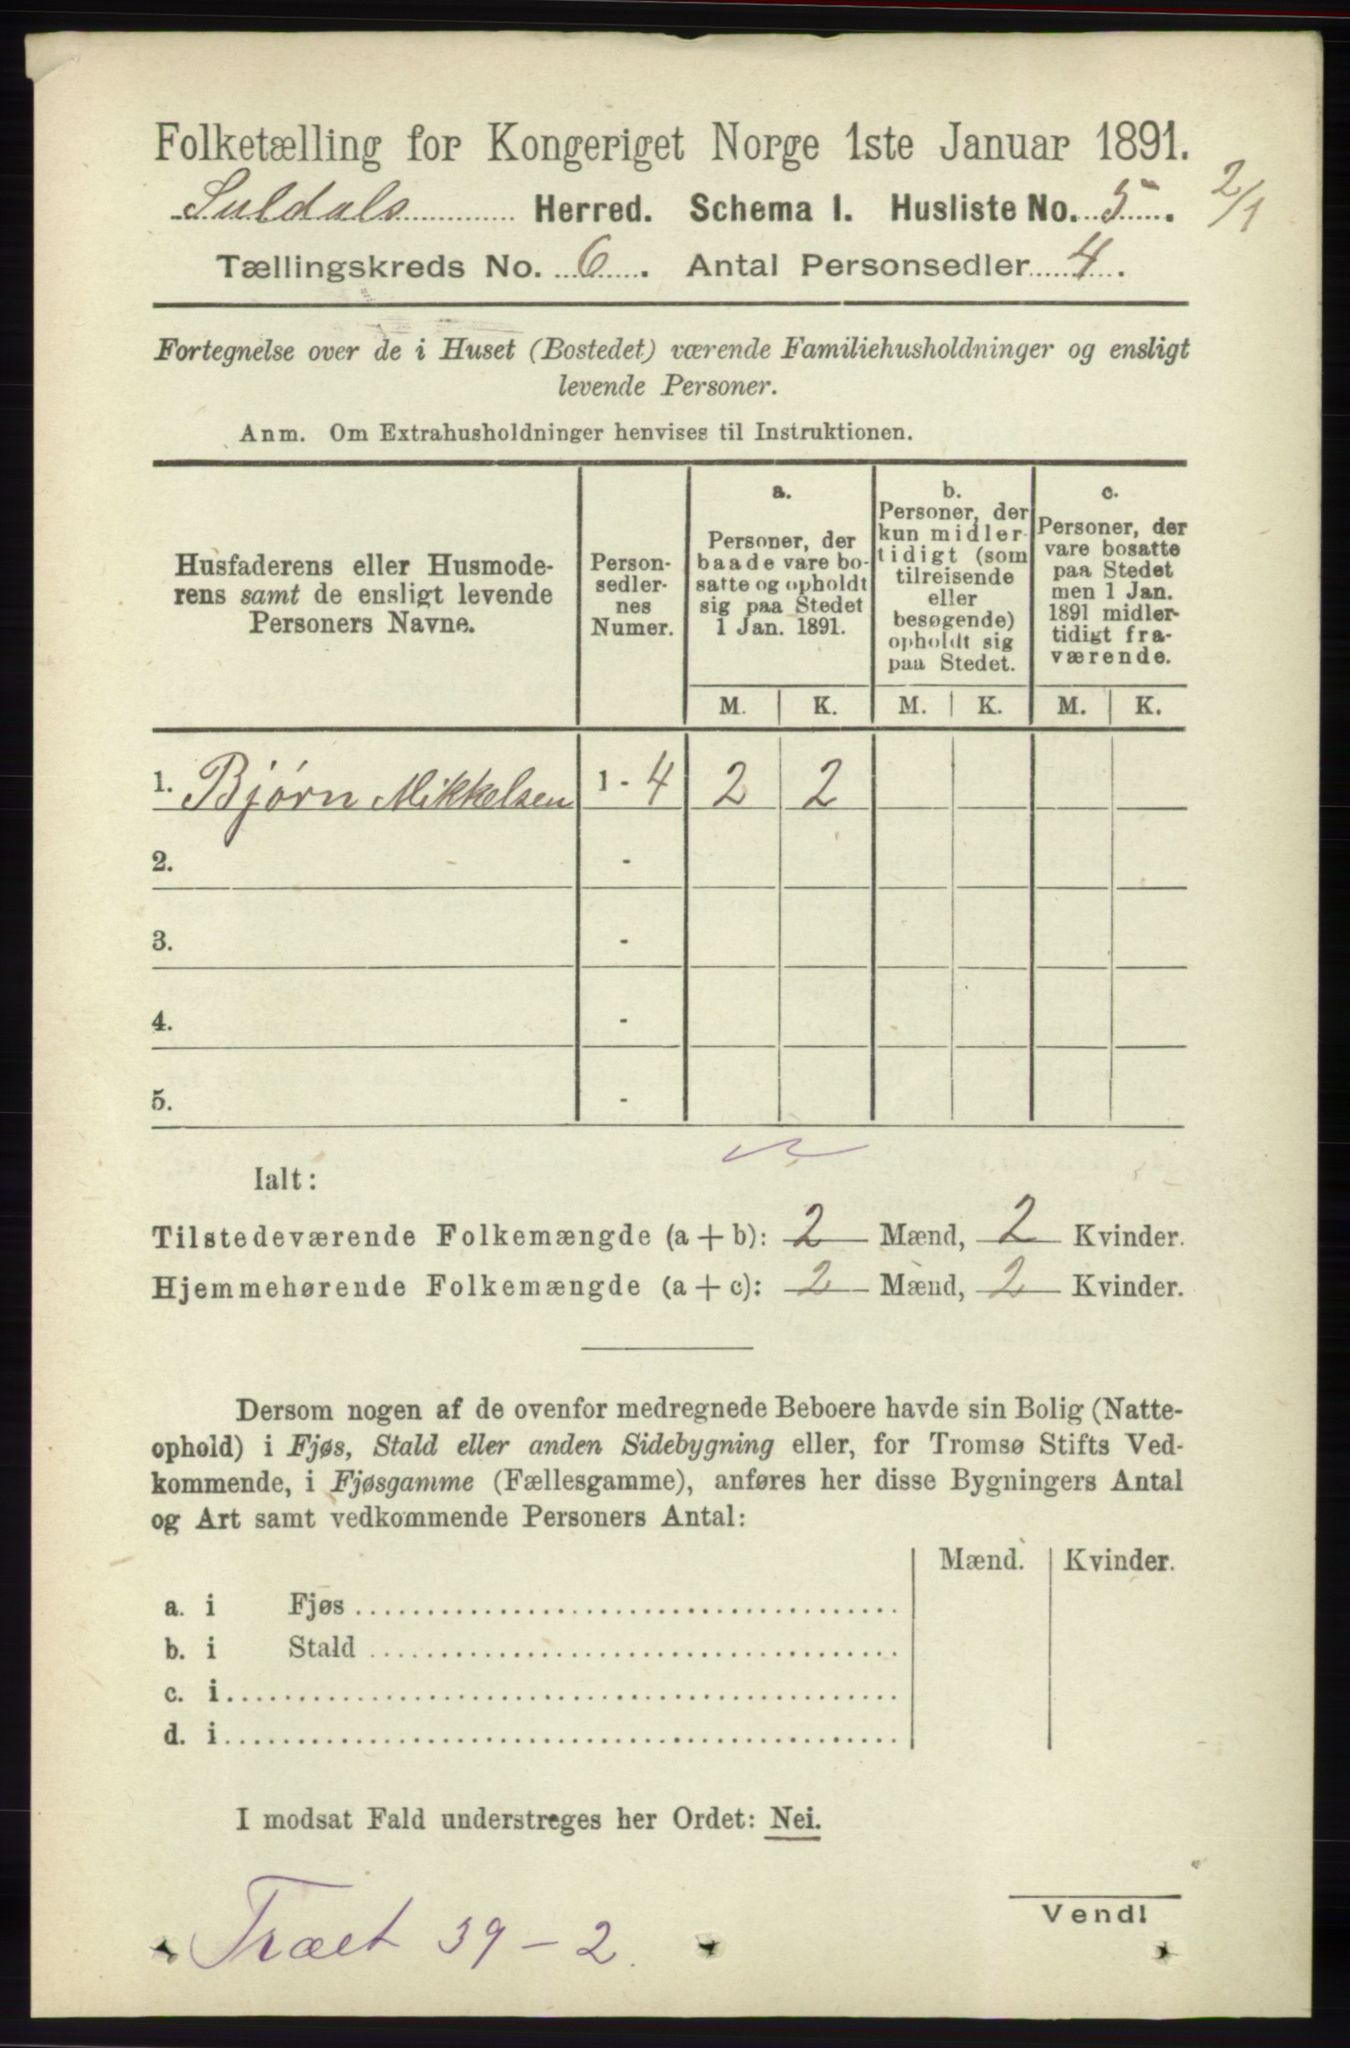 Folketælling for Kongeriget Norge 1ste Januar 1891.
Suldals Herred. Schema I. Husliste No. 5. 2/1
Tællingskreds No. 6. Antal Personsedler 4.
Fortegnelse over de i Huset (Bostedet) værende Familiehusholdninger og ensligt
levende Personer.
Anm. Om Extrahusholdninger henvises til Instruktionen.
Husfaderens eller Husmode-
rens samt de ensligt levende
Personers Navne.
Person-
sedler-
nes
Numer.
a.
Personer, der
baade vare bo-
satte og opholdt
sig paa Stedet
1 Jan. 1891.
b.
Personer, der
kun midler-
tidigt (som
tilreisende
eller
besøgende)
opholdt sig
paa Stedet.
c.
Personer, der
vare bosatte
paa Stedet
men 1 Jan.
1891 midler-
tidigt fra-
værende.
M. K. M. K. M. K.
1. Bjørn Mikkelsen 1 - 4 2 2
2. -
3. -
4. -
5. -
Ialt:
Tilstedeværende Folkemængde (a + b): 2 Mænd, 2 Kvinder.
Hjemmehørende Folkemængde (a + c): 2 Mænd, 2 Kvinder.
Dersom nogen af de ovenfor medregnede Beboere havde sin Bolig (Natte-
ophold) i Fjøs, Stald eller anden Sidebygning eller, for Tromsø Stifts Ved-
kommende, i Fjøsgamme (Fællesgamme), anføres her disse Bygningers Antal
og Art samt vedkommende Personers Antal:
Mænd. Kvinder.
a. i Fjøs
b. i Stald
c. i
d. i
I modsat Fald understreges her Ordet: Nei.
Vend!
Træet 39 - 2.